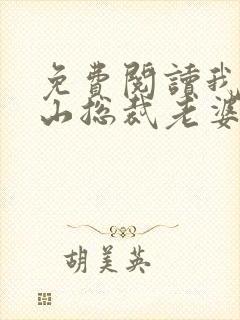 免費閱讀我
山総裁老婆
胡美英